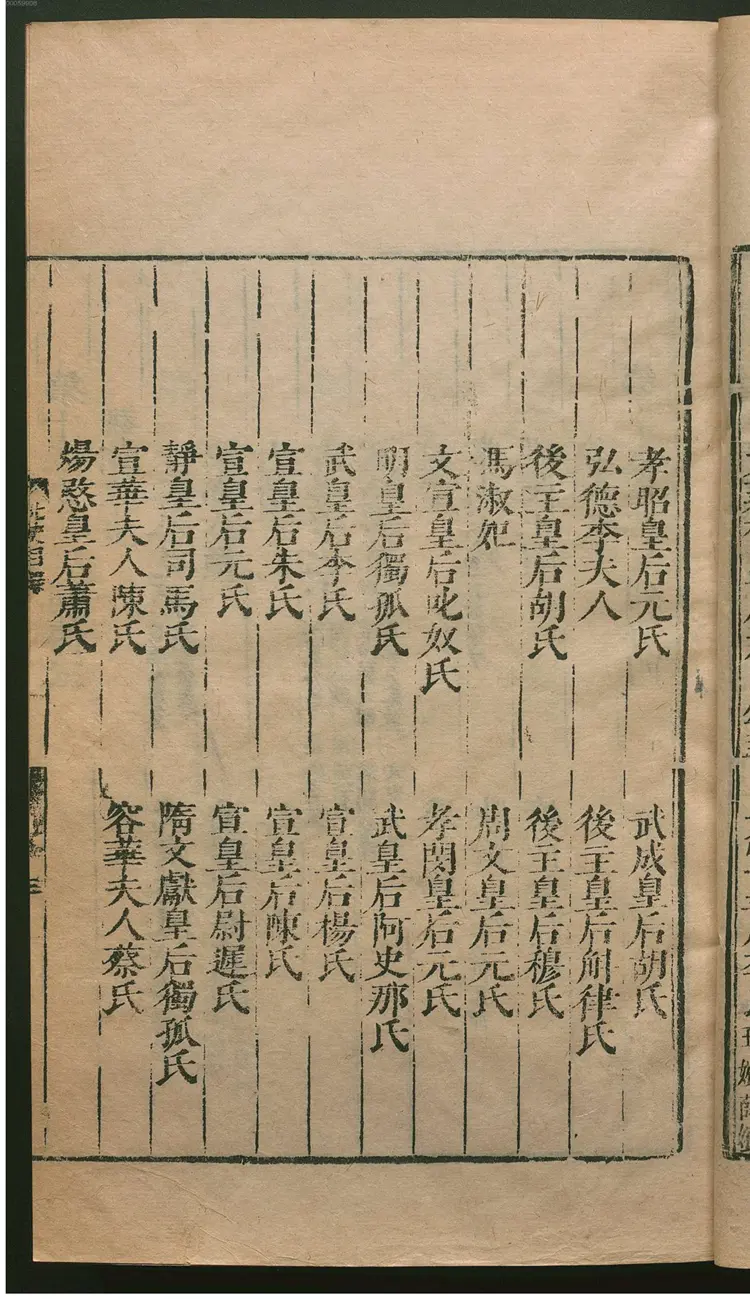 孝昭皇后元氏
武成皇后胡氏
弘德李夫人
後主皇后斛律氏
後主皇后胡氏
後主皇后穆氏
馮淑妃
周文皇后元氏
文宣皇后叱奴氏
孝閔皇后元氏
明皇后獨孤氏
武皇后阿史那氏
武皇后李氏
宣皇后楊氏
宣皇后朱氏
宣皇后陳氏
宣皇后元氏
宣皇后尉遲氏
靜皇后司馬氏
隋文獻皇后獨孤氏
宣華夫人陳氏
容華夫人蔡氏
煬愍皇后蕭氏